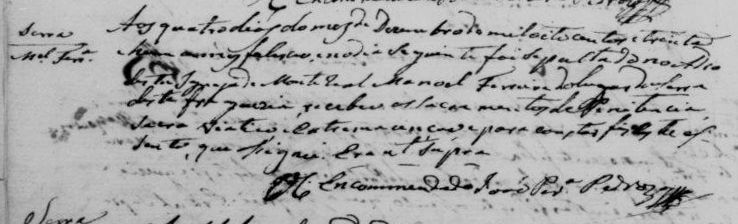 Serra
Mel Ferra
Aos quatro dias do mez de Dezembro de mil oito centos e trinta
hum annos faleceo, e no dia seguinte foi sepultado no Adro
desta Igreja de Monte Real Manoel Ferreira do lugar da Serra
desta freguezia, recebeo os sacramentos de Penitencia
sacro Viatico e extrema uncao e para constar fiz este as
sento, que asignei Era ut supra
O Encommendado José Pera Pedroza
Serra